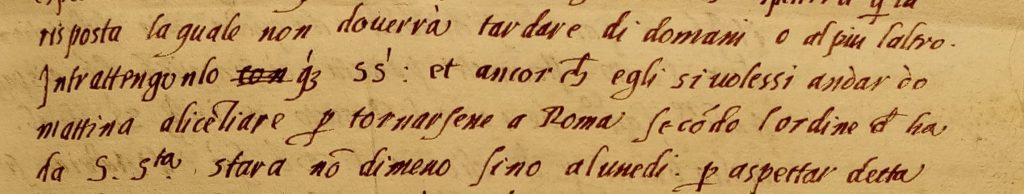 risposta la quale non douerrà tardare di domani o al piu laltro.
Intrattengonlo ton q̃ SS.ri: et ancor ch̃ egli si uolessi andar
mattina a licẽtiare p tornarsene a Roma secõdo lordine ch̃ ha
da S. S.ta stara nõ dimeno sino a lunedi. p aspettar detta